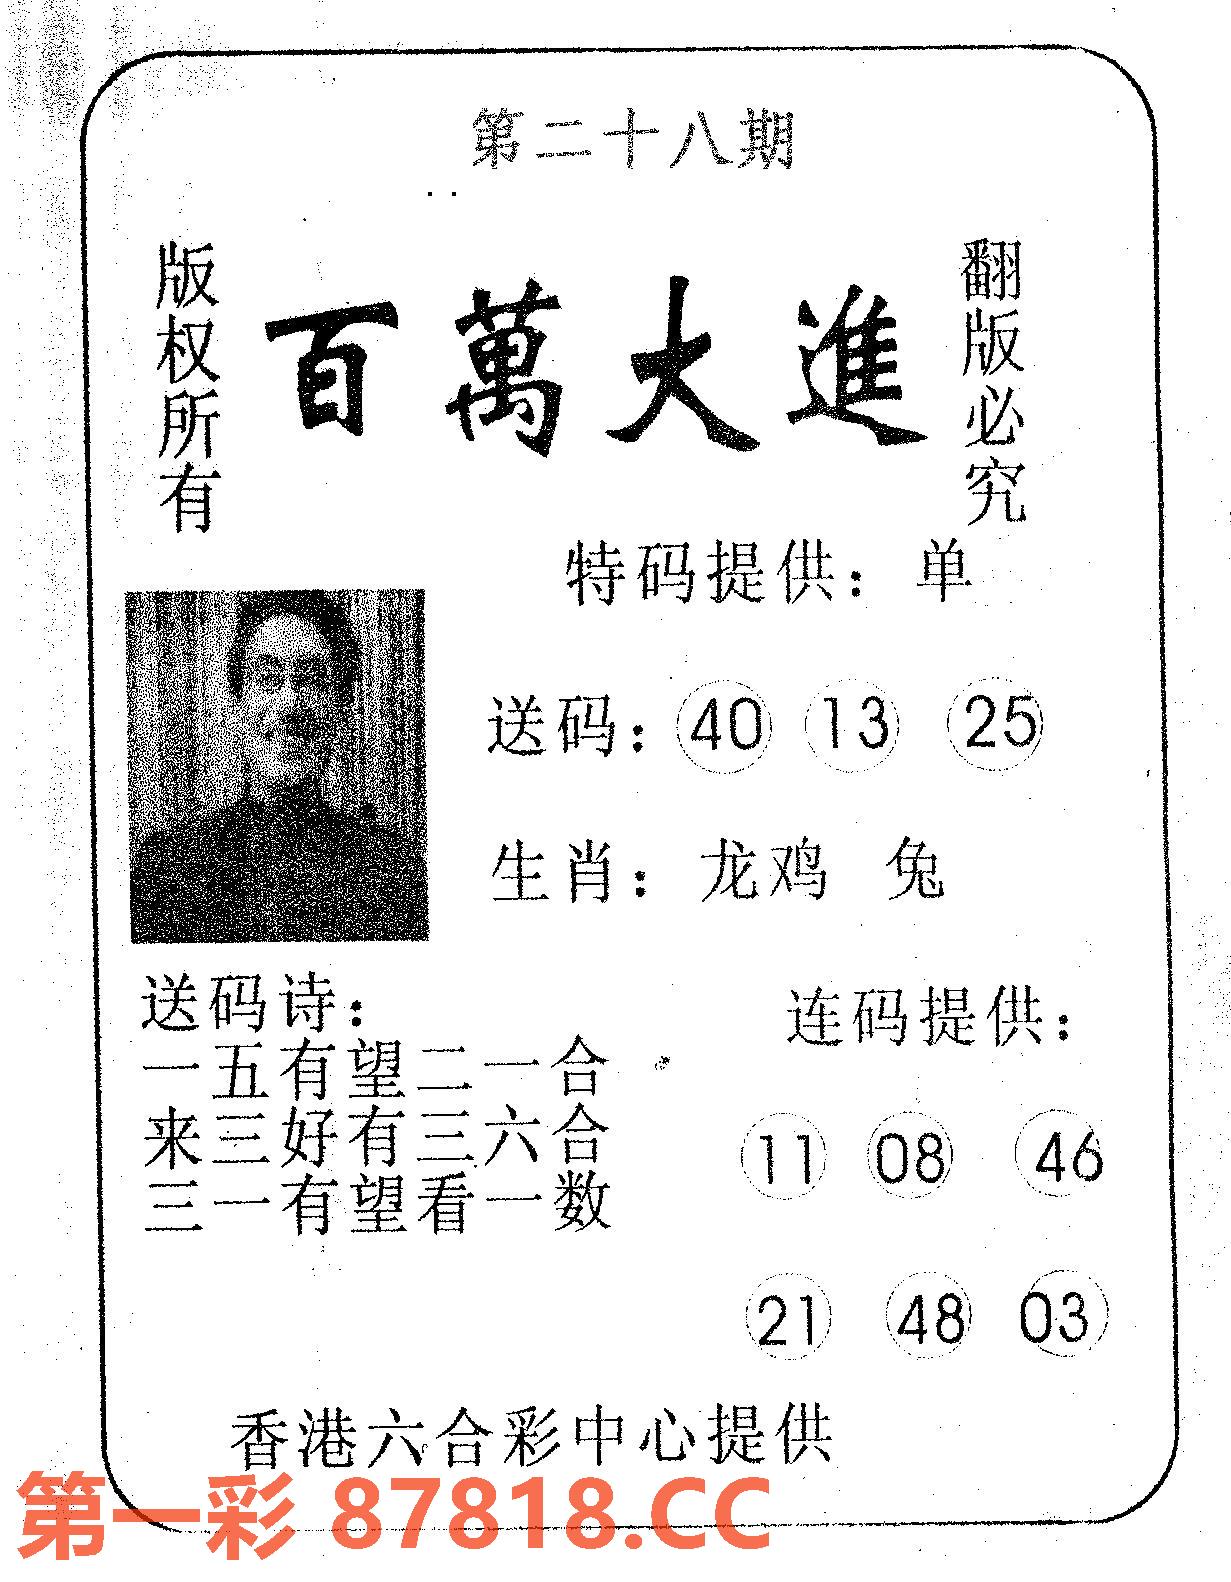 第二十八期
版权所有
百萬大進
翻版必究
特码提供：单
送码：40 13 25
生肖：龙鸡 兔
送码诗：
一五有望二一合
来三好有三六合
三一有望看一数
连码提供：
11 08 46
21 48 03
香港六合彩中心提供
第一彩 87818.CC